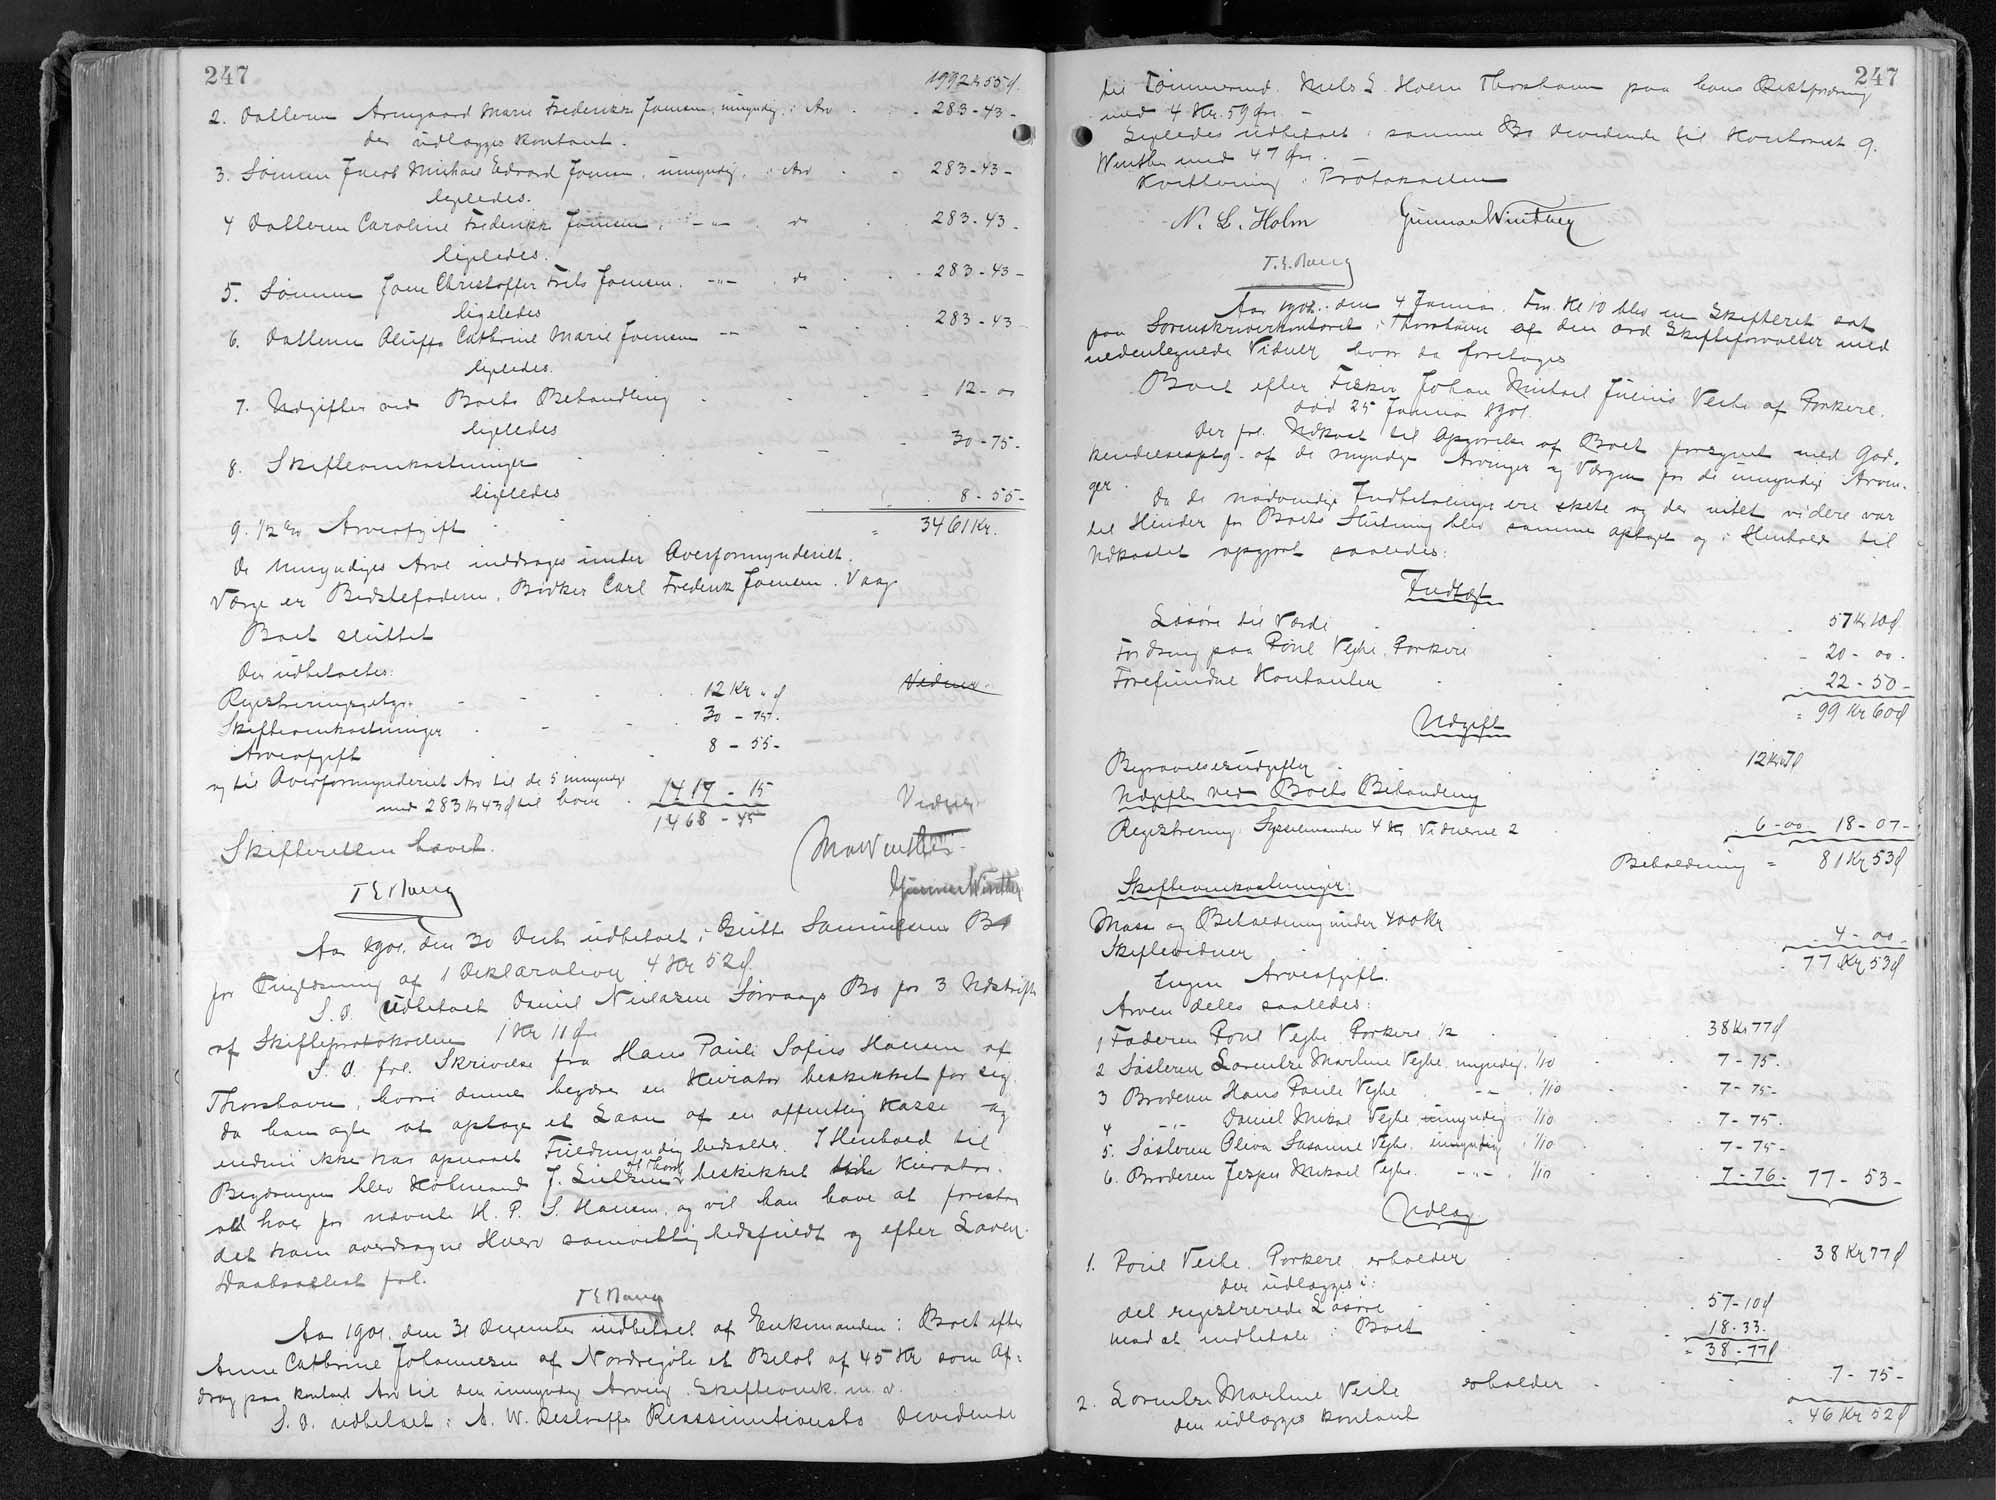 247
1992 Kr 55 Ø.
2. Datteren Armgaard Marie Frederikke Joensen, umyndig, i Arv - 283-43-
der udlægges kontant.
3. Sønnen Jacob Michael Edvard Joensen, umyndig, i Arv - 283-43-
ligeledes.
4 Datteren Caroline Frederikke Joensen, -"- do 283-43-
ligeledes.
5. Sønnen Jens Christoffer Frits Joensen. -"- do - 283-43-
ligeledes
6. Datteren Cathrine Marie Joensen -"- 283-43-
ligeledes.
7. Udgifter ved Boets Behandling - 12-00
ligeledes
8. Skifteomkostninger - 30-75-
ligeledes
9. 1/2 % Arveafgift 8-55-
= 3461 Kr.
De Umyndiges Arv inddrages under Overformynderiet.
Værge er Bedstefaderen, Bødker Carl Frederik Joensen. Vaag
Boet sluttet
Der udbetaltes:
Registreringsgebyr. 12 Kr. " Ø Vidner.
Skifteomkostninger 30 - 75.
Arveafgift 8 - 55-
og til Overformynderiet Arv til de 5 umyndige
med 283 Kr 43 Ø til hver 1417 - 15 Vidner
1468 - 45
Skifteretten hævet.
Winther
Gunnar Winther
Aar 1901. den 30 Decb. udbetalt i Samuelsens Bo
for Tinglæsning af 1 Deklaration 4 Kr 52 Ø.
S. D. udbetalt Daniel Nielsens Sørvaags Bo for 3 Udskrifter
af Skifteprotokollen 1 Kr 11 Ø.
S. D. frl. Skrivelse fra Hans Pauli Sofus Hansen af
Thorshavn, hvori denne begærer en Kurator beskikket for sig
da han agter at optage et Laan af en offentlig Kasse og
endnu ikke har opnaaet Fuldmyndighedsalder. I Henhold til
Begæringen blev Købmand J. af Thorsh. beskikket til Kurator
for nævnte H. P. S. Hansen, og vil han have at forestaa
det ham overdragne Hverv samvittighedsfuldt og efter Loven.
Daabsattest frl.
Aar 1901. den 31 December indbetalt af Enkemanden i Boet efter
Anne Cathrine Johannesen af Nordregøte et Beløb af 45 Kr som Af-
drag paa kontant Arv til den umyndig Arving. Skifteomk. m. v.
S. D. udbetalt i A. W. Restorffs Reassumtionsbo Dividende
247
til Tømmermd. Niels L. Holm Thorshavn paa hans Restfordring
med 4 Kr. 59 Øre -
Ligeledes udbetalt i samme Bo Dividende til Kontorist G.
Winther med 47 Øre.
Kvittering i Protokollen
N. L. Holm Gunnar Winther
Aar 1902. den 4 Januar. Fm. Kl 10 blev en Skifteret sat
paa Sorenskriverkontoret i Thorshavn af den ord Skifteforvalter med
nedentegnede Vidner hvor da foretoges
Boet efter Fisker Johan Michael Julius Vejhe af Porkere.
død 25 Januar 1901.
Der frl. Udkast til Opgørelse af Boet forsynet med God-
kendelsespt. af de myndige Arvinger og Værgen for de umyndige Arvin-
ger.
Da de nødvendige Indbetalinger ere skete og der intet videre var
til Hinder for Boets Slutning blev samme optaget og i Henhold til
Udkastet opgjort saaledes:
Indtægt
Løsøre til Værdi 57 Kr 10 Ø
Fordring paa Poul Vejhe Porkere - 20 - 00 -
Forefundne Kontanter 22 - 50 -
= 99 Kr 60 Ø
Udgift
Begravelsesudgifter 12 Kr 07 Ø
Udgifter ved Boets Behandling
Registrering. Sysselmanden 4 Kr Vidnerne 2 6-00 18-07-
Beholdning = 81 Kr 53 Ø
Skifteomkostninger:
Masse og Beholdning under 400 Kr
Skiftevidner 4-00-
77 Kr 53 Ø
Ingen Arveafgift.
Arven deles saaledes:
1 Faderen Poul Vejhe Porkere 1/2 38 Kr 77 Ø
2 Søsteren Lorentse Marlene Vejhe, myndig. 1/10 7-75-
3 Broderen Hans Paule Vejhe -"- 1/10 7-75-
4 -"- Daniel Mikal Vejhe umyndig 1/10 7-75-
5. Søsteren Oliva Susanne Vejhe. umyndig 1/10 7-75-
6. Broderen Jesper Mikael Vejhe. -"- 1/10 7-76- 77-53-
Udlæg
1. Poul Vejhe. Porkere erholder 38 Kr 77 Ø
der udlægges i:
det registrerede Løsøre 57-10 Ø
mod at indbetale i Boet 18.33.
= 38-77 Ø
2. Lorentse Marlene Vejhe erholder 7-75-
der udlægges kontant
46 Kr 52 Ø